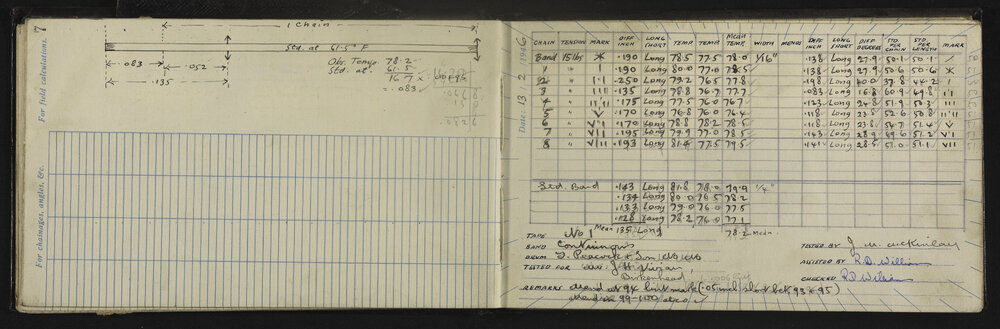 7
For field calculations.
For chainages, angles, &c.
1 chain
Std. at 61.5° F
.083
.052
.135
Obs. Temp. 78.2
Std. at. 61.5
16.7 x
= .083
Date: 13/2/1946
CHAIN TENSION MARK DIFF INCH LONG SHORT TEMP. TEMP. MEAN TEMP WIDTH MENSR DIFF INCH LONG SHORT DIFF DEGREES STD. PER CHAIN STD. PER LENGTH MARK
Band 15 lbs .190 Long 78.5 77.5 78.0 1/16" .138 Long 27.9 50.1 50.1 /
1 " I .190 Long 80.0 77.0 78.5 .138 Long 27.9 50.6 50.6
2 " II .250 Long 79.2 76.5 77.8 .198 Long 40.0 37.8 44.2 I
3 " III .135 Long 78.8 76.7 77.7 .083 Long 16.8 60.9 49.8 II
4 " IIII .175 Long 77.5 76.0 76.7 .123 Long 24.8 51.9 50.3 III
5 " V .170 Long 76.8 76.0 76.4 .118 Long 23.8 52.6 50.8 IIII
6 " VI .170 Long 78.8 78.2 78.5 .118 Long 23.8 54.7 51.4 V
7 " VII .195 Long 79.9 77.0 78.5 .143 Long 28.9 49.6 51.2 VI
8 " VIII .193 Long 81.4 77.5 79.5 .141 Long 28.5 51.0 51.1 VII
Std. Band .143 Long 81.8 78.0 79.9 1/4"
.134 Long 80.0 76.5 78.2
.133 Long 79.0 76.0 77.5
.128 Long 78.2 76.0 77.1
TAPE No 1 Mean .135 Long 78.2 Mean
BAND Continuous
DRUM D. Peacock & Son
TESTED FOR J H Vivian,
Birkenhead
TESTED BY J. McKinlay
ASSISTED BY R.D. William
CHECKED R.D. William
REMARKS at 94 link mark (.05 inch short bet. 93 & 95)
99-100